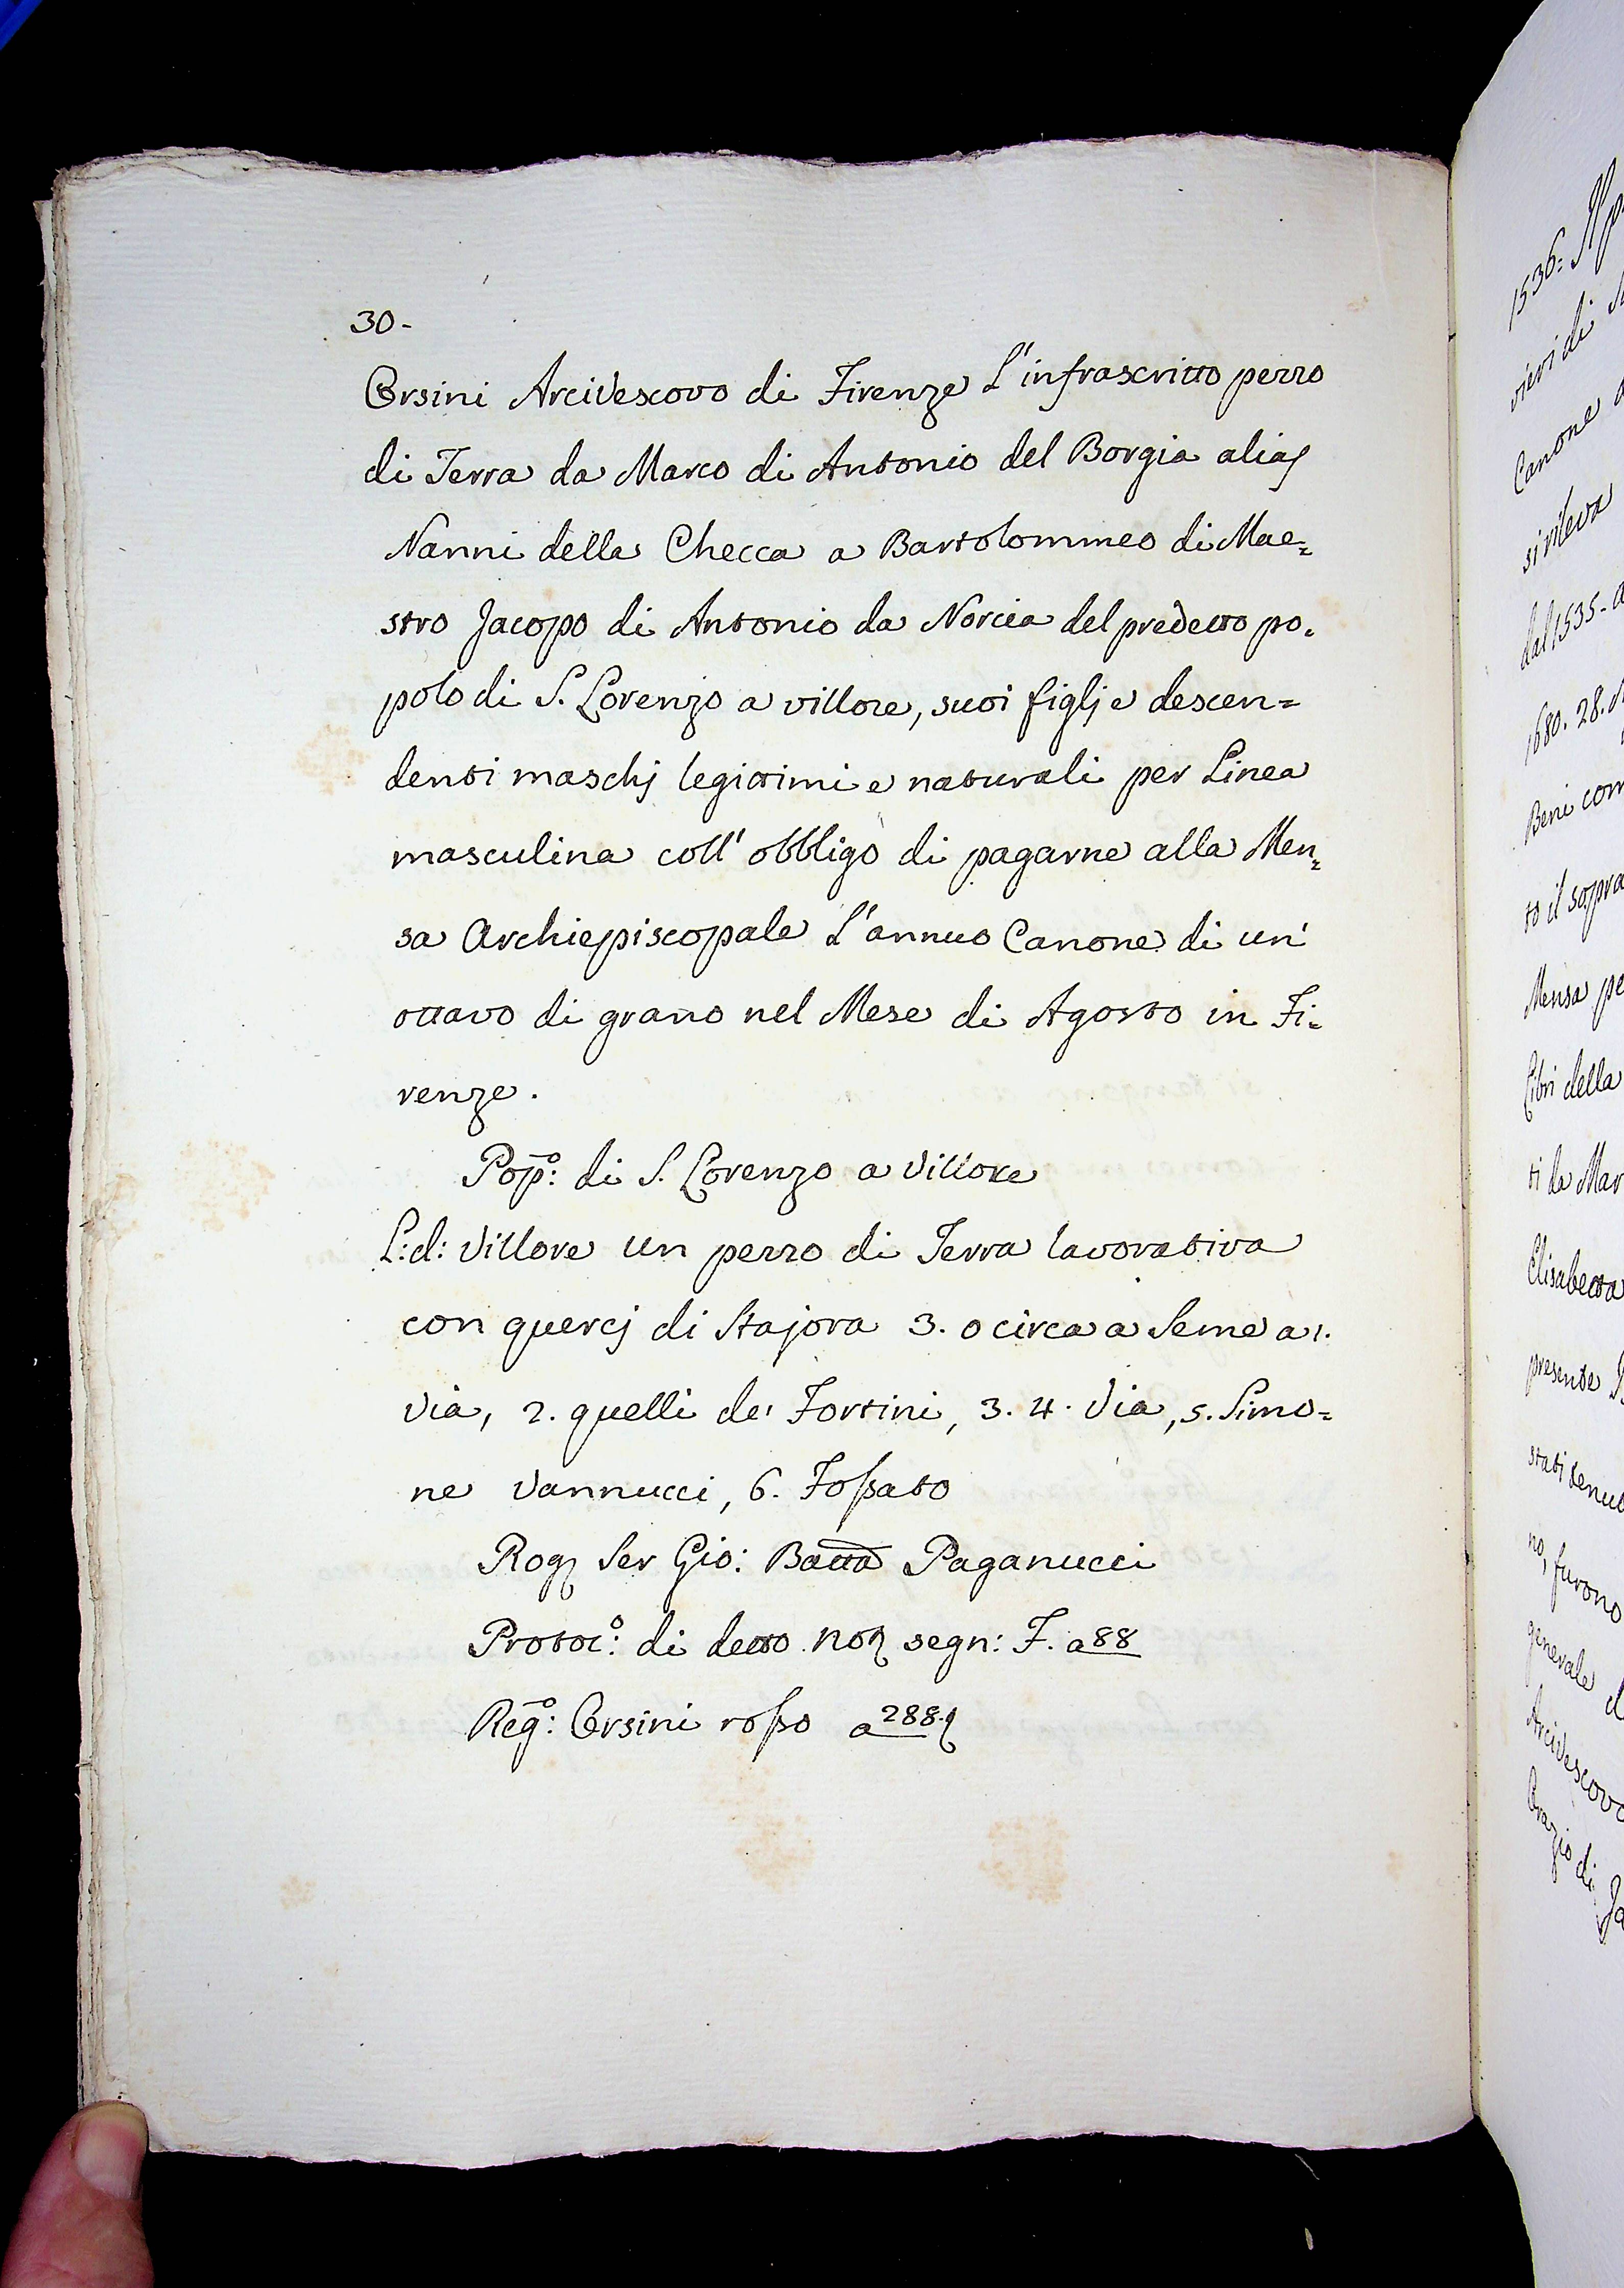 30-
Orsini Arcivescovo di Firenze L'infrascritto pezzo
di Terra da Marco di Antonio del Borgia alias
Nanni della Checca a Bartolommeo di Mae=
stro Jacopo di Antonio da Norcia del predetto po-
polo di S. Lorenzo a villore, suoi figlj e descen=
denti maschj legittimi e naturali per Linea
masculina coll' obbligo di pagarne alla Men=
sa Archiepiscopale L'annuo Canone di un'
ottavo di grano nel Mese di Agosto in Fi=
renze.
Pop̄o: di S. Lorenzo a Villore
L: d: Villore un pezzo di Terra lavorativa
con quercj di Stajora 3. o circa a Seme a 1.
Via, 2. quelli de' Fortini, 3. 4. Via, 5. Simo=
ne Vannucci, 6. Fossato
Rog Ser Gio: Batta Paganucci
Protoc.o: di detto Not segn: F. a 88
Reg̃o: Orsini rosso a 288.
1536:
vieri di
Canone
si rileva
dal 1535-
1680. 28.
Beni com
to il sopra
Mensa pe
Libri della
ti da Mar
Elisabetta
presente
stati tenut
no, furono
generale d
Arcivescovo
Orazio di